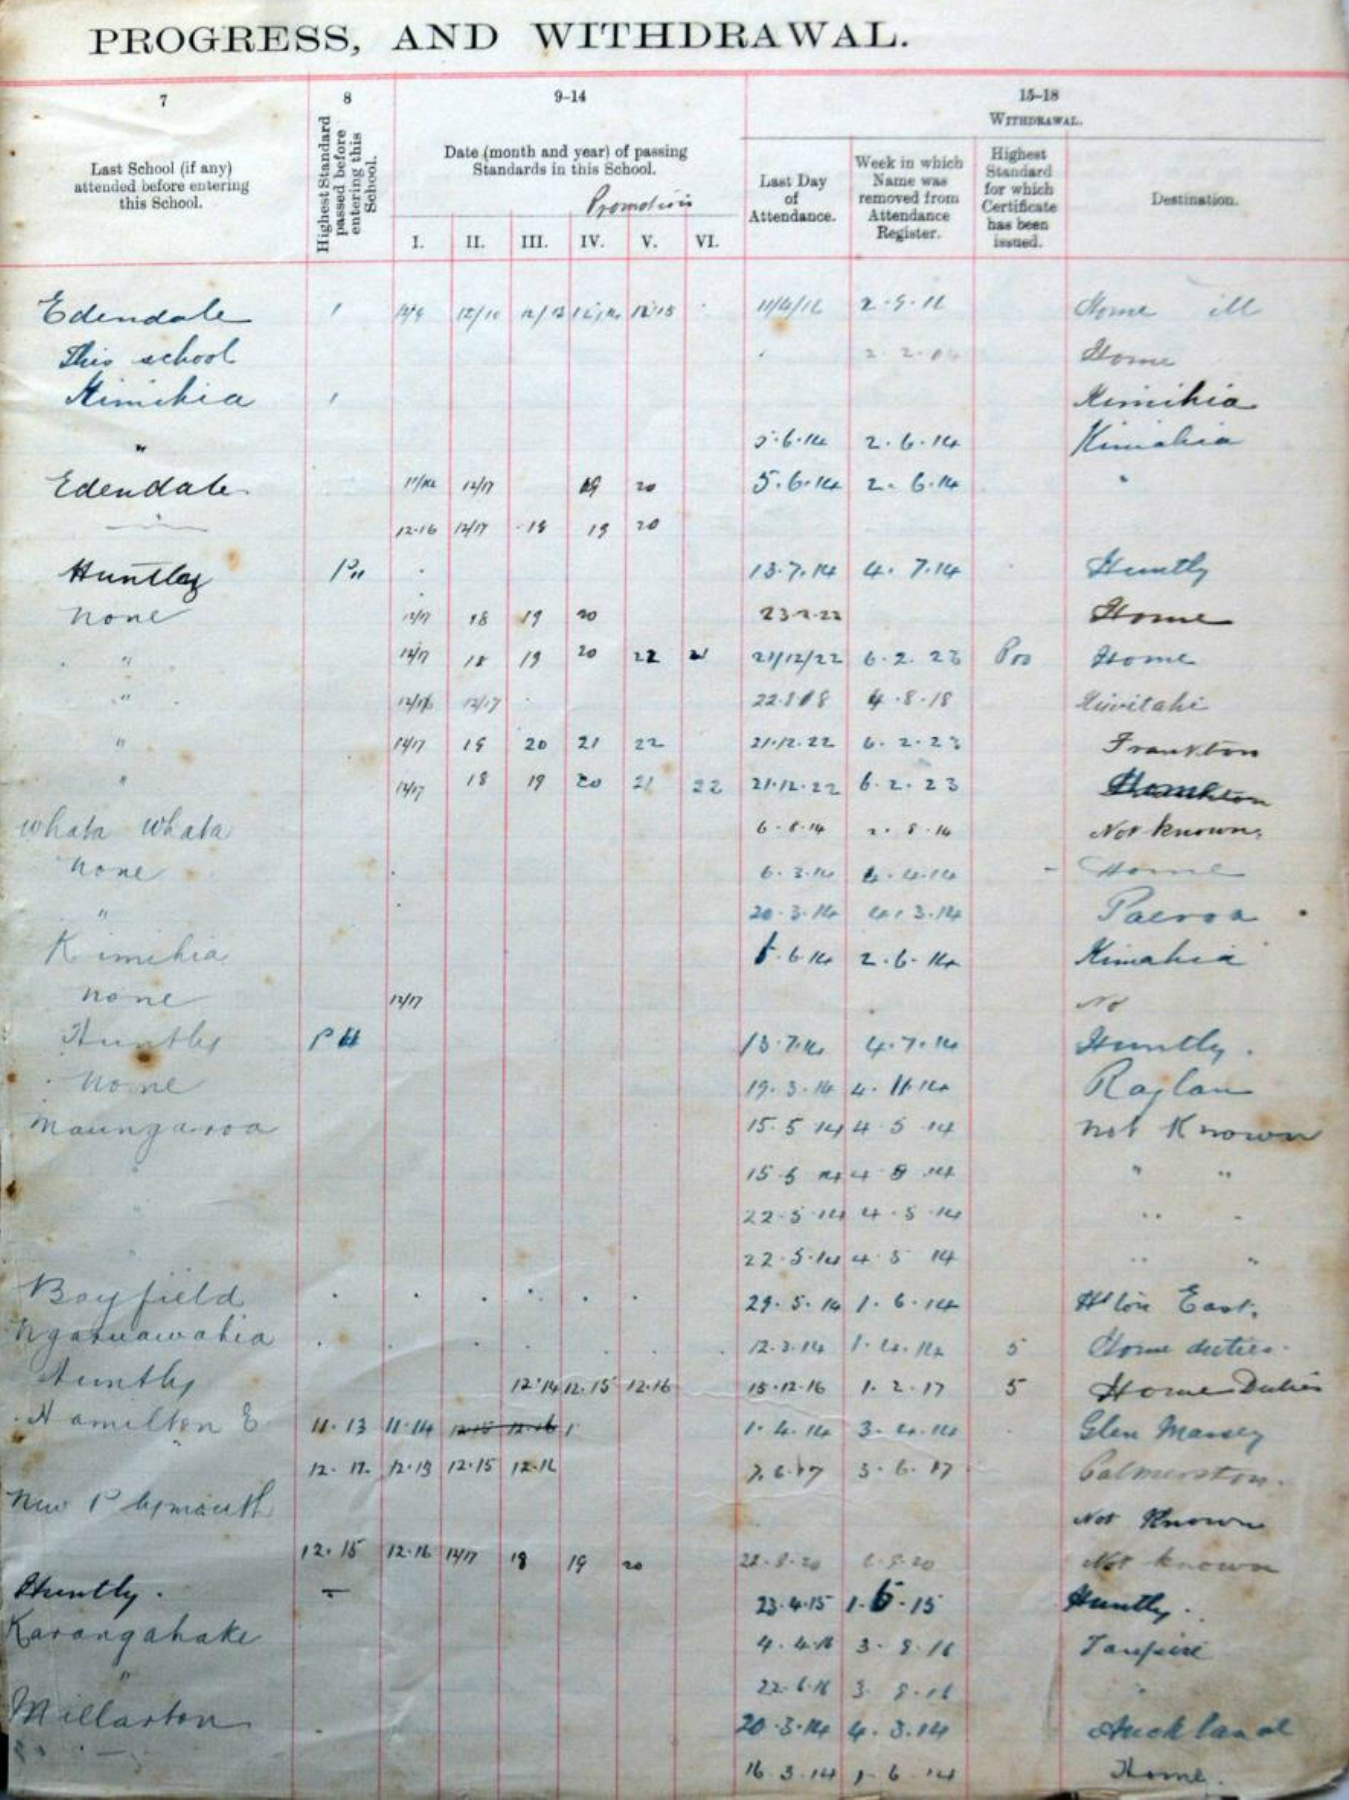 PROGRESS, AND WITHDRAWAL.
7 8 9–14 15–18
WITHDRAWAL.
Last School (if any) attended before entering this School.
Highest Standard passed before entering this School.
Date (month and year) of passing Standards in this School.
Promotions
I. II. III. IV. V. VI.
Last Day of Attendance.
Week in which Name was removed from Attendance Register.
Highest Standard for which Certificate has been issued.
Destination.
Edendale 1 12/10 12/13 12.15 Home ill
This school Home
Kimihia 1 Kimihia
" 5.6.14 2.6.14 Kimihia
Edendale 12/17 19 20 5.6.14 2.6.14 "
" 12.16 12/17 18 19 20
Huntley 13.7.14 4.7.14 Huntly
None 12/17 18 19 20 23.2.22 Home
" 12/17 18 19 20 22 21 21/12/22 6.2.23 Home
" 12/17 4.8.18 Kiwitahi
" 12/17 19 20 21 22 21.12.22 6.2.23 Frankton
" 12/17 18 19 20 21 22 21.12.22 6.2.23
Whata Whata 6.8.14 2.8.14 Not known
None 4.4.14 Home
" 20.3.14 4.3.14 Paeroa
Kimihia 6.14 2.6.14 Kimahia
none 12/17 No
Huntly P 13.7.14 4.7.14 Huntly.
None 19.3.14 Raglan
Maungaroa 15.5.14 4.5.14 not Known
" 15.5.14 " "
" 22.5.14 4.5.14 " "
" 22.5.14 4.5.14 " "
Bayfield 29.5.14 1.6.14 H'ton East.
Ngaruawahia 12.3.14 1.4.14 5 Home duties.
Huntly 12.14 12.15 12.16 15.12.16 1.2.17 5 Home Duties
Hamilton E 11.13 11.14 12.15 12.16 1.4.14 3.4.14 Glen Massey
" 12.12. 12.13 12.15 12.16 3.6.17 Palmerston.
New Plymouth Not Known
12.15 12.16 12/17 18 19 20 Not known
Huntly. – 23.4.15 1.5.15 Huntly.
Karangahake 3.8.16 Taupiri
" 22.6.16 3.8.16 "
Millarton 20.3.14 4.3.14 Auckland
16.3.14 1.6.14 Home.